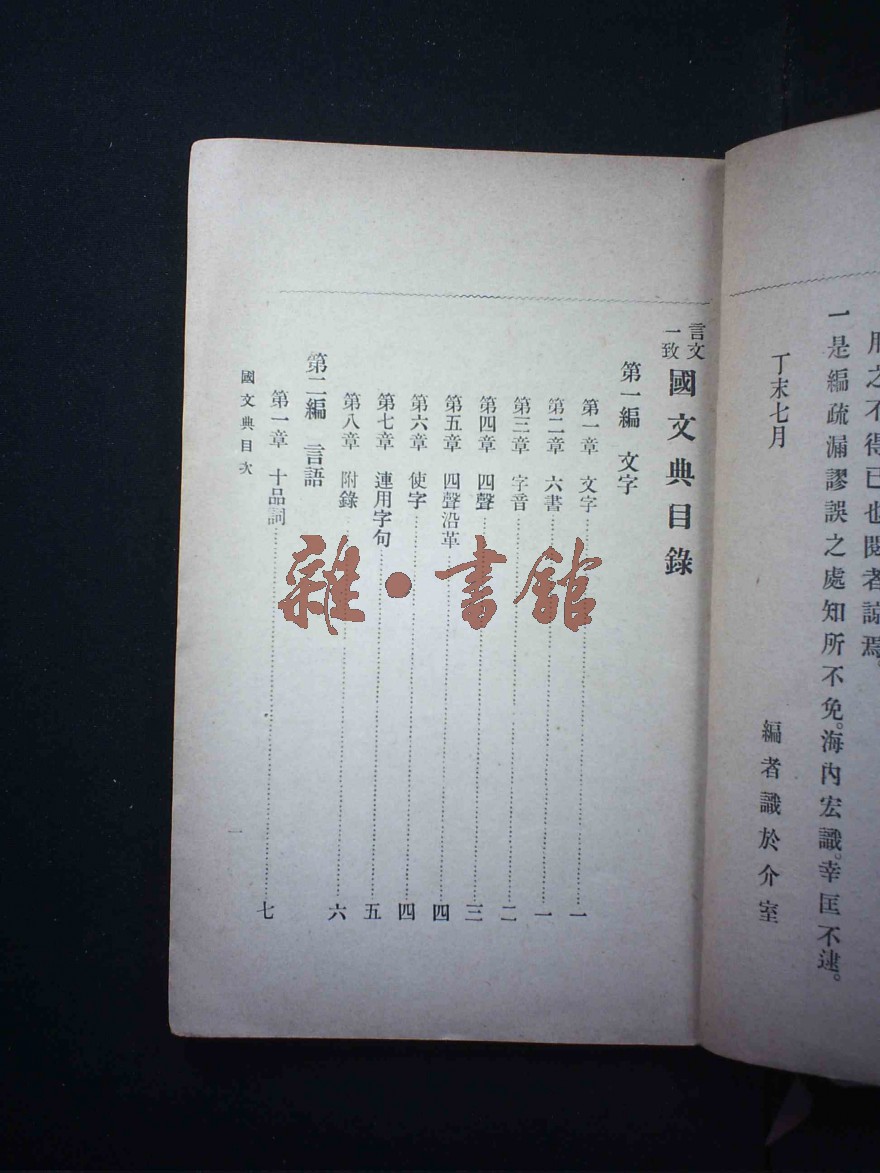 用之不得已也閱者諒焉。
一是編疏漏謬誤之處知所不免。海內宏識。幸匡不逮。
丁未七月
編者識於介室
言文一致 國文典目錄
第一編 文字
第一章 文字………一
第二章 六書………一
第三章 字音………二
第四章 四聲………三
第五章 四聲沿革………四
第六章 使字………四
第七章 連用字句………五
第八章 附錄………六
第二編 言語
第一章 十品詞………七
國文典目次
一
雜·書館